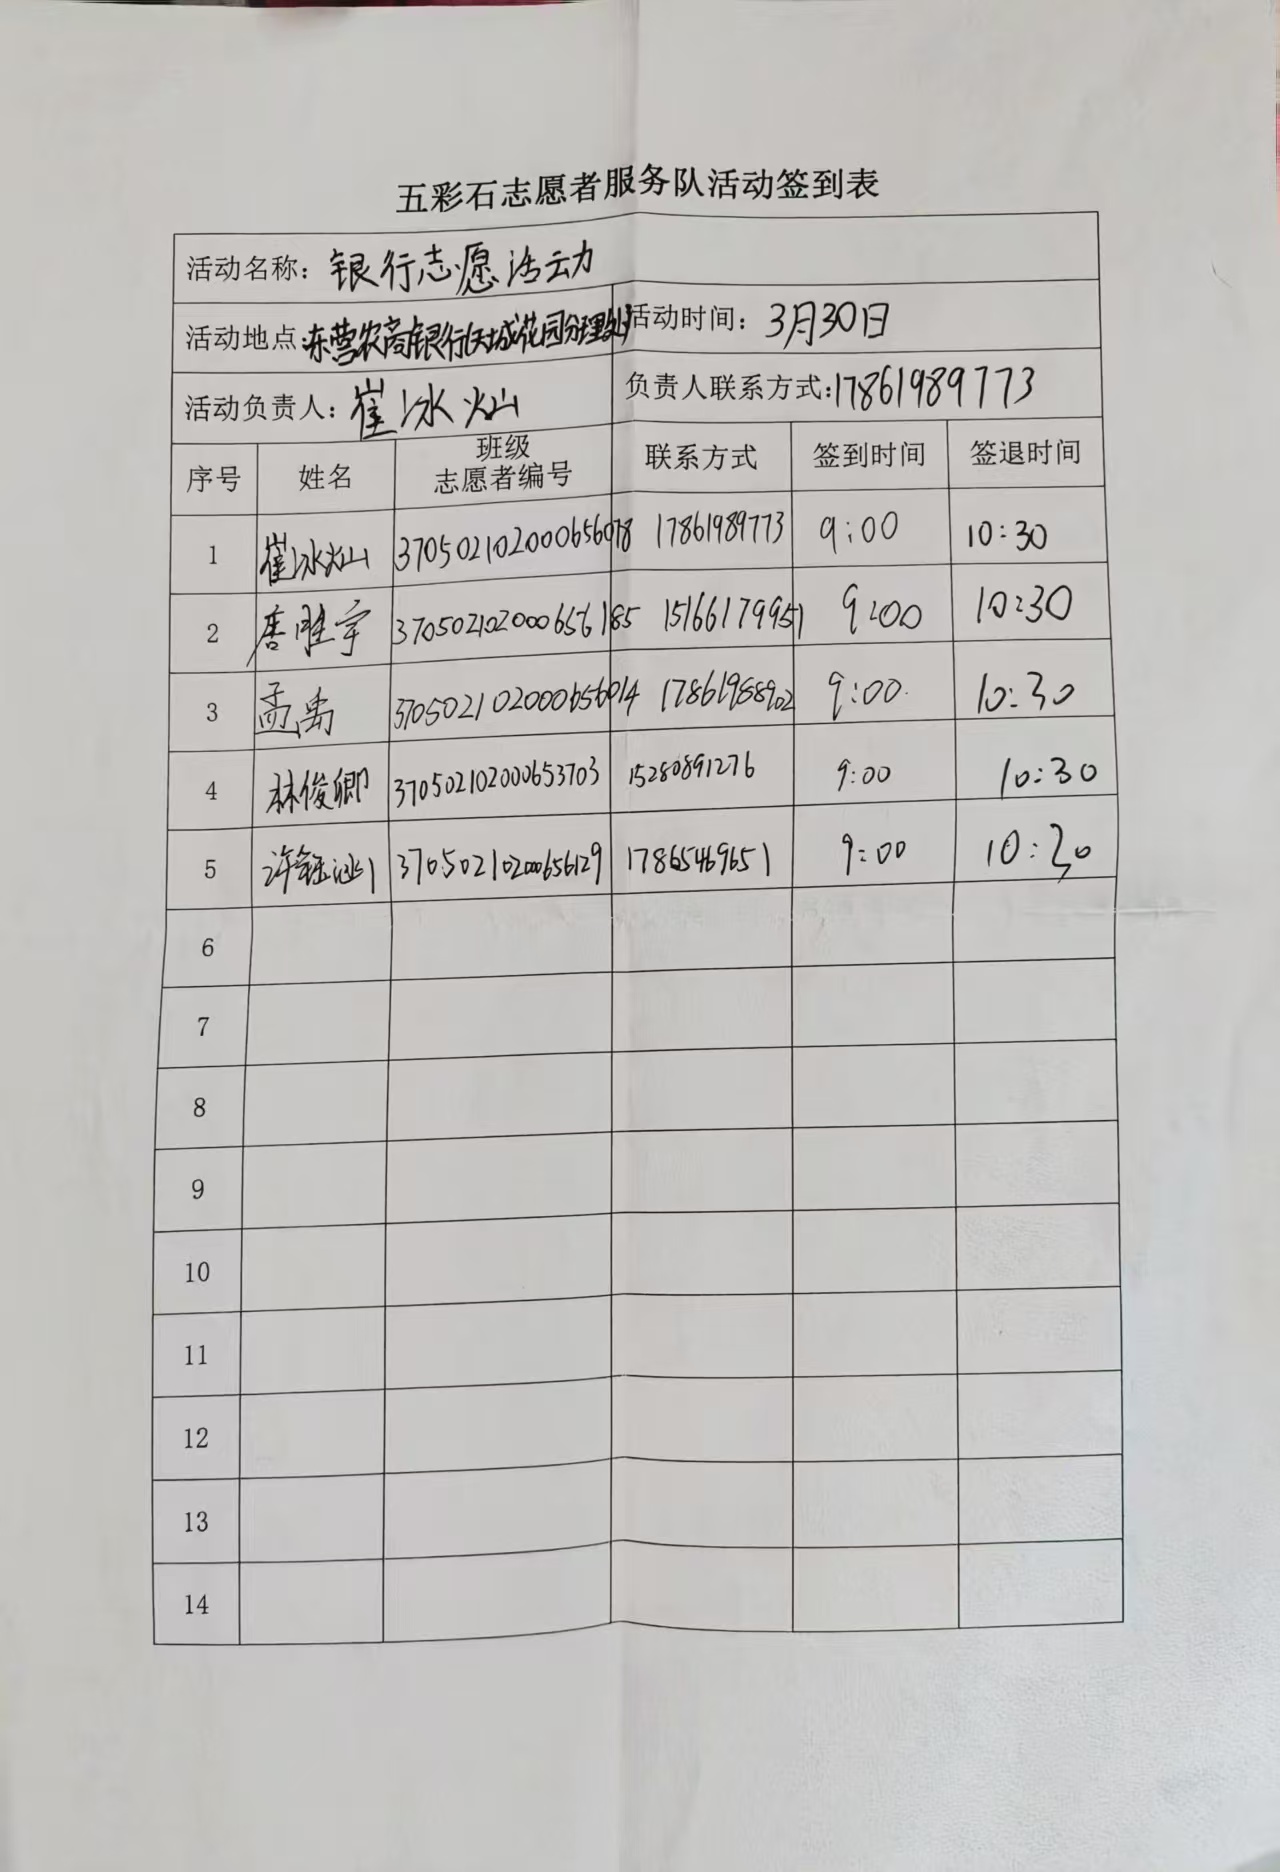 五彩石志愿者服务队活动签到表
活动名称：银行志愿活动
活动地点：东营农商银行天城花园分理处 活动时间：3月30日
活动负责人：崔冰灿 负责人联系方式：17861989773
序号 姓名 班级志愿者编号 联系方式 签到时间 签退时间
1 崔冰灿 370502102000656078 17861989773 9:00 10:30
2 唐胜宇 370502102000656185 15166179951 9:00 10:30
3 孟禹 370502102000656014 17861988902 9:00 10:30
4 林俊卿 370502102000653703 15280891276 9:00 10:30
5 370502102000656129 17865469651 9:00 10:30
6
7
8
9
10
11
12
13
14